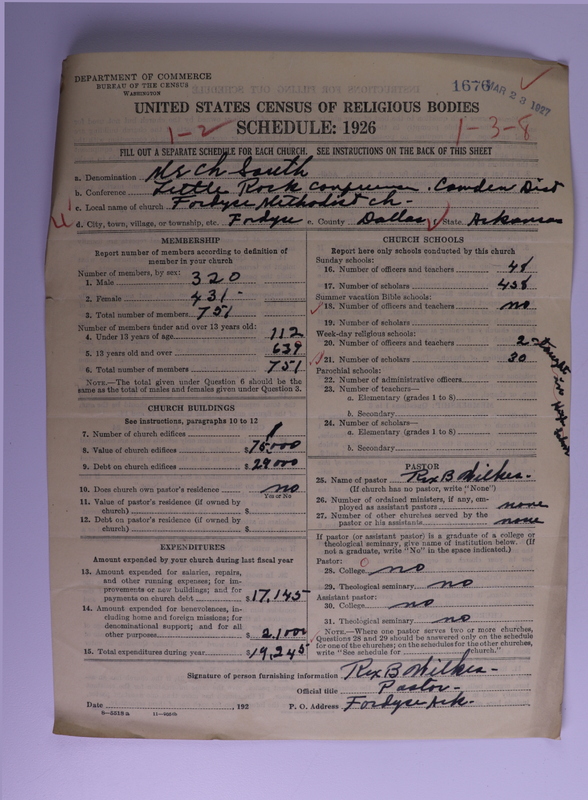 DEPARTMENT OF COMMERCE
BUREAU OF THE CENSUS
WASHINGTON
1676 MAR 23 1927
UNITED STATES CENSUS OF RELIGIOUS BODIES
1-2 SCHEDULE: 1926 1-3-8
FILL OUT A SEPARATE SCHEDULE FOR EACH CHURCH. SEE INSTRUCTIONS ON THE BACK OF THIS SHEET
a. Denomination M E Ch South
b. Conference Little Rock Conference. Camden Dist
c. Local name of church Fordyce Methodist ch-
d. City, town, village, or township, etc. Fordyce e. County Dallas f. State Arkansas
MEMBERSHIP
Report number of members according to definition of
member in your church
Number of members, by sex:
1. Male 320
2. Female 431-
3. Total number of members 751
Number of members under and over 13 years old:
4. Under 13 years of age 112
5. 13 years old and over 639
6. Total number of members 751
NOTE.—The total given under Question 6 should be the
same as the total of males and females given under Question 3.
CHURCH BUILDINGS
See instructions, paragraphs 10 to 12
7. Number of church edifices 1
8. Value of church edifices $75,000
9. Debt on church edifices $29000
10. Does church own pastor's residence no
Yes or No
11. Value of pastor's residence (if owned by
church) $
12. Debt on pastor's residence (if owned by
church) $
EXPENDITURES
Amount expended by your church during last fiscal year
13. Amount expended for salaries, repairs,
and other running expenses; for im-
provements or new buildings; and for
payments on church debt $17,145
14. Amount expended for benevolences, in-
cluding home and foreign missions; for
denominational support; and for all
other purposes $2,100
15. Total expenditures during year $19,245
CHURCH SCHOOLS
Report here only schools conducted by this church
Sunday schools:
16. Number of officers and teachers 48
17. Number of scholars 458
Summer vacation Bible schools:
18. Number of officers and teachers no
19. Number of scholars
Week-day religious schools:
20. Number of officers and teachers 2-
21. Number of scholars 30
taught in High School
Parochial schools:
22. Number of administrative officers
23. Number of teachers—
a. Elementary (grades 1 to 8)
b. Secondary
24. Number of scholars—
a. Elementary (grades 1 to 8)
b. Secondary
PASTOR
25. Name of pastor Rex B Wilkes-
(If church has no pastor, write "None")
26. Number of ordained ministers, if any, em-
ployed as assistant pastors none
27. Number of other churches served by the
pastor or his assistants none
If pastor (or assistant pastor) is a graduate of a college or
theological seminary, give name of institution below. (If
not a graduate, write "No" in the space indicated.)
Pastor:
28. College no
29. Theological seminary no
Assistant pastor:
30. College no
31. Theological seminary no
NOTE.—Where one pastor serves two or more churches,
Questions 28 and 29 should be answered only on the schedule
for one of the churches; on the schedules for the other churches,
write "See schedule for church."
Signature of person furnishing information Rex B Wilkes-
Official title Pastor-
Date , 192 P. O. Address Fordyce Ark.